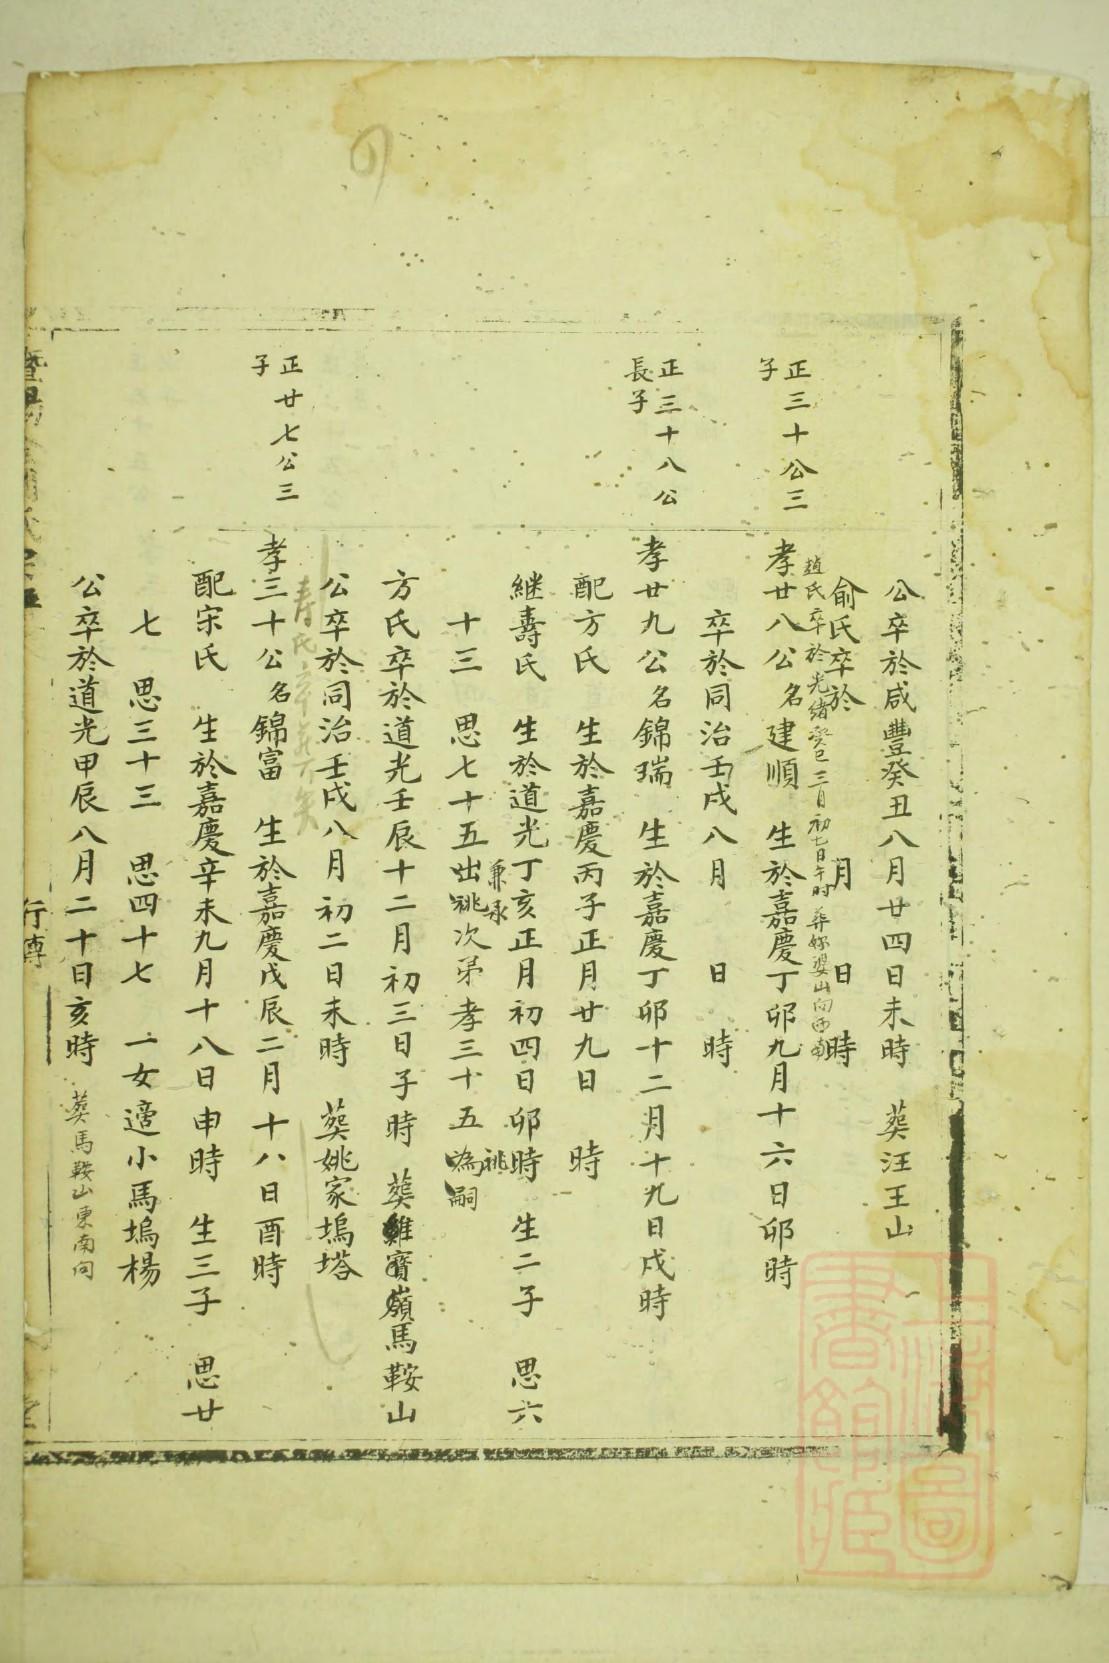 公卒於咸豐癸丑八月廿四日未時 葬汪王山
俞氏卒於 月 日 時
趙氏卒於光緒癸巳三月初七日午時 葬 婆山向西南
正三十公三
子
孝廿八公名建順 生於嘉慶丁卯九月十六日卯時
卒於同治壬戌八月 日 時
正三十八公
長子
孝廿九公名錦瑞 生於嘉慶丁卯十二月十九日戌時
配方氏 生於嘉慶丙子正月廿九日 時
継壽氏 生於道光丁亥正月初四日卯時 生二子 思六
十三 思七十五出祧次弟孝三十五為嗣
兼承
祧
方氏卒於道光壬辰十二月初三日子時 葬雞寶嶺馬鞍山
公卒於同治壬戌八月初二日未時 葬姚家塢塔
壽氏卒葬 失
正廿七公三
子
孝三十公名錦富 生於嘉慶戊辰二月十八日酉時
配宋氏 生於嘉慶辛未九月十八日申時 生三子 思廿
七 思三十三 思四十七 一女適小馬塢楊
公卒於道光甲辰八月二十日亥時 葬馬鞍山東南向
行傳